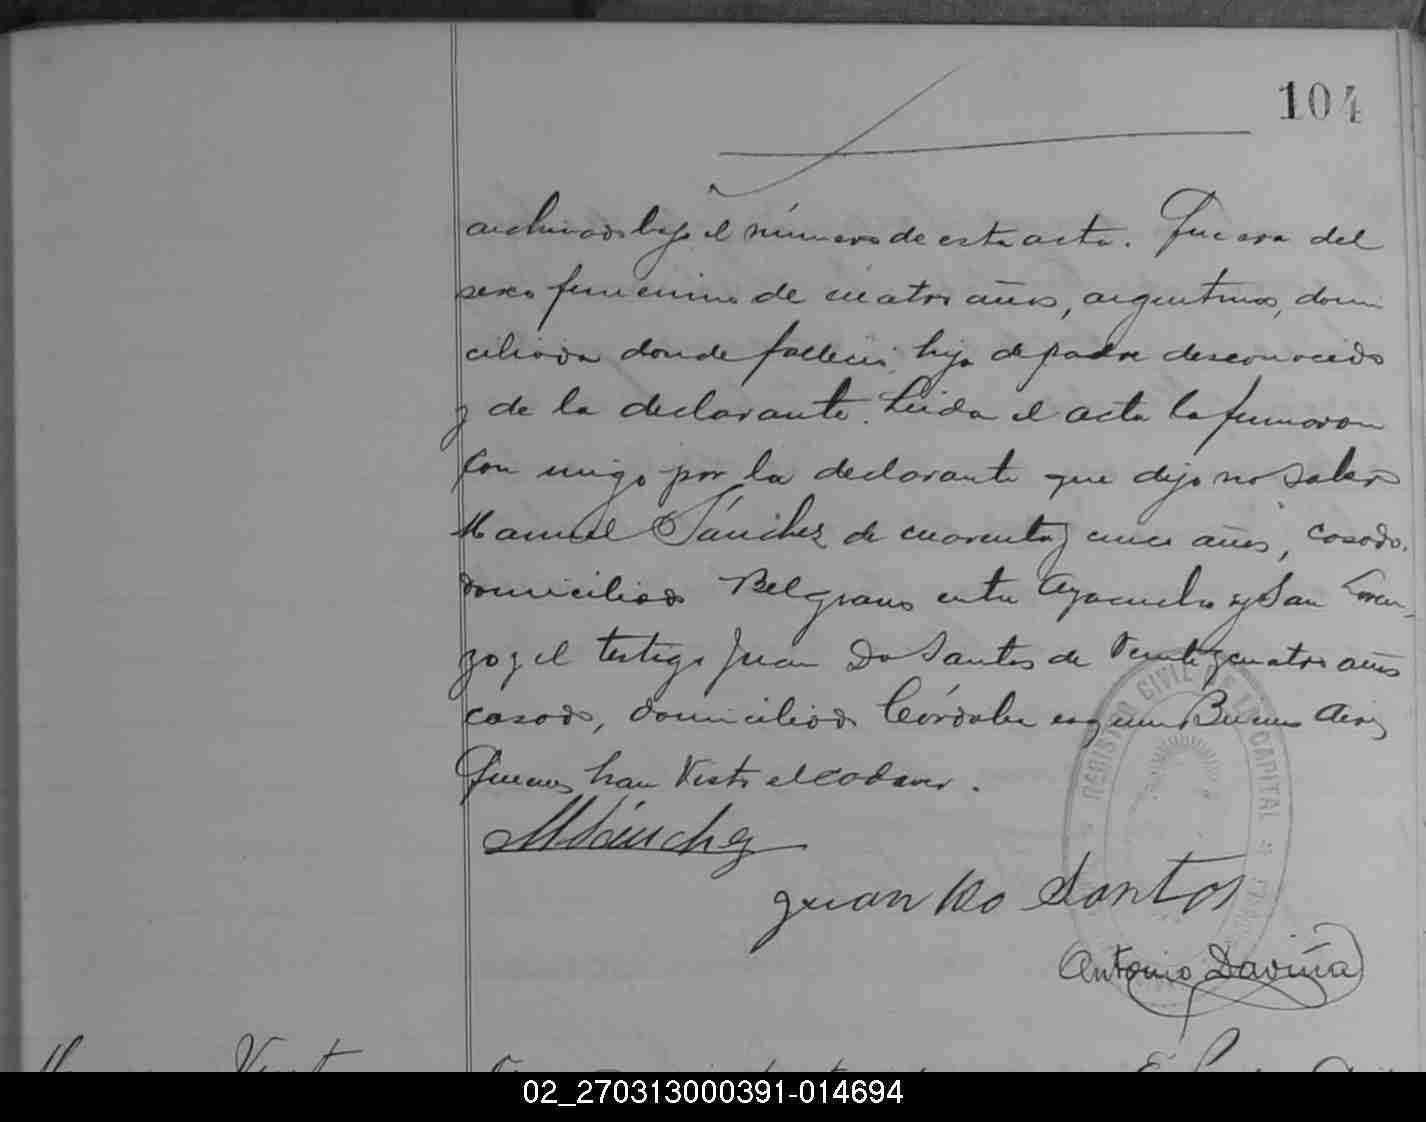 104
archivado bajo el número de esta acta. Que era del
sexo femenino de cuatro años, argentina, domi
ciliada donde falleció, hija de padre desconocido
y de la declarante. Leida el acta la firmaron
con migo por la declarante que dijo no saber
Manuel Sánchez de cuarenta y cinco años, casado,
domiciliado Belgrano entre Ayacucho y San Loren-
zo y el testigo Juan Do Santos de veinte y cuatro años
casado, domiciliado Córdoba esquina Buenos Aires
Quienes han visto el cadaver.
MSánchez
Juan Do Santos
REGISTRO CIVIL DE LA CAPITAL
Antonio Daviña
02_270313000391-014694